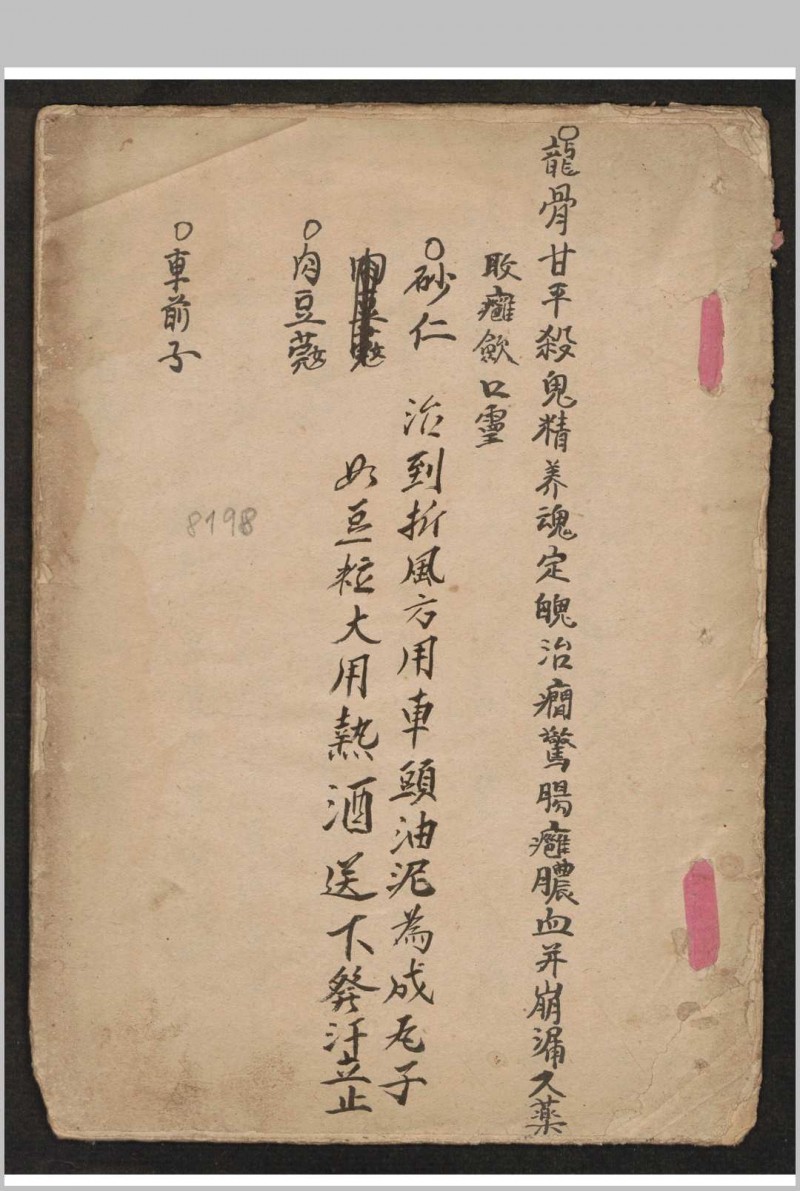 龍骨甘平殺鬼精养魂定魄治癇驚腸癰膿血并崩漏久藥
癰歛口靈
砂仁
治到折風方用車頭油泥為成丸子
如豆粒大用熱酒送下發汗立止
肉豆蔻
車前子
8198